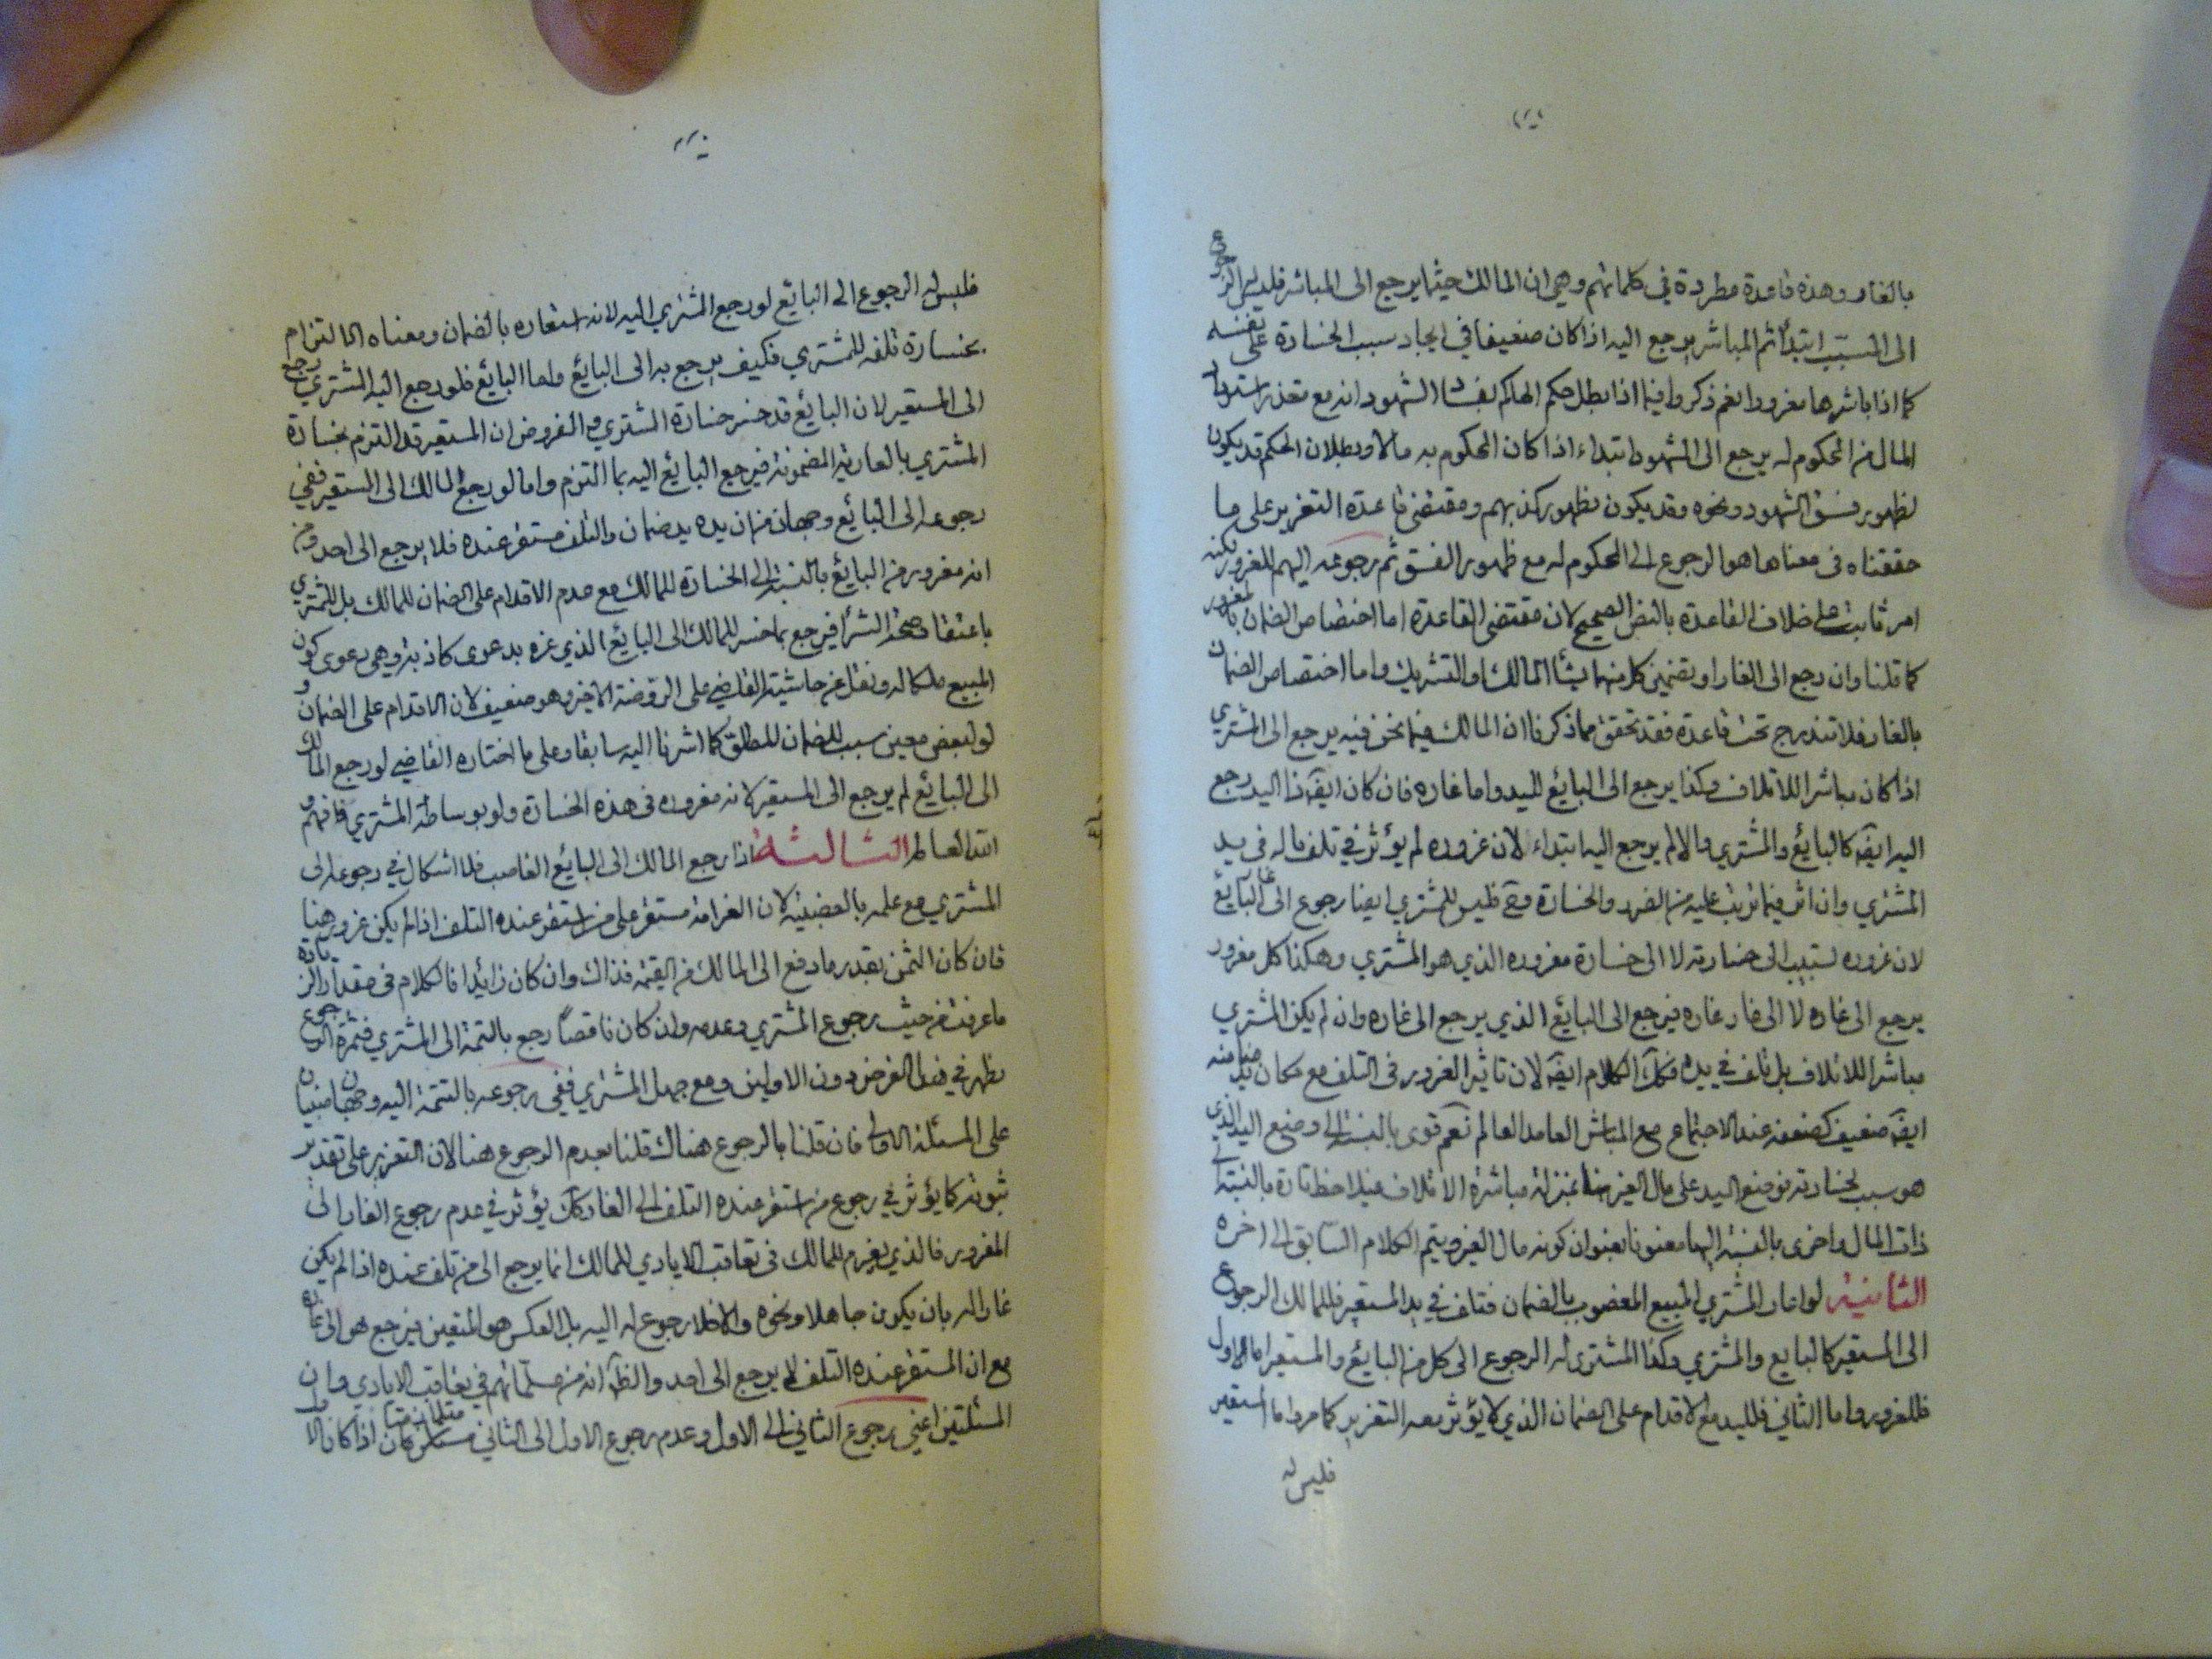 بالغار وهذه قاعدة مطردة في كلماتهم وهي ان المالك حيثما يرجع الى المباشر فليس له الرجوع
الى المسبب ابتداً ثم المباشر يرجع اليه اذا كان ضعيفا في ايجاد سبب الخسارة على نفسه
كما اذا باشرها مغرورا نعم ذكروا فيما اذا بطل حكم الحاكم بفساد الشهود انه مع تعذر استرداد
المال من المحكوم له يرجع الى الشهود ابتداء اذا كان المحكوم به مالا وبطلان الحكم قد يكون
لظهور فسق الشهود ونحوه وقد يكون لظهور كذبهم ومقتضى قاعدة التغرير على ما
حققناه في معناها هو الرجوع الى المحكوم له مع ظهور الفسق ثم رجوعه اليهم للغرور لكنه
امر ثابت على خلاف القاعدة بالنص الصحيح لان مقتضى القاعدة اما اختصاص الضمان بالمغرور
كما قلنا وان رجع الى الغار او تضمين كل منهما يشأ المالك او التشريك واما اختصاص الضمان
بالغار فلا تندرج تحت قاعدة فقد تحقق مما ذكرنا ان المالك فيما نحن فيه يرجع الى المشتري
اذا كان مباشرا للاتلاف وكذا يرجع الى البايع لليد واما غاره فان كان ايضا ذا اليد رجع
اليه ايضا كالبايع والمشتري والا لم يرجع اليه ابتداء لان غروره لم يؤثر في تلف ماله في يد
المشتري وان اثر فيما ترتب عليه من الضرر والخسارة وح فليس للمشتري ايضا رجوع الى غار البايع
لان غروره تسبب الى خسارته لا الى خسارة مغروره الذي هو المشتري وهكذا كل مغرور
يرجع الى غاره لا الى غار غاره فيرجع الى البايع الذي يرجع الى غاره وان لم يكن المشتري
مباشرا للاتلاف بل تلف في يده فكك الكلام ايضا لان تاثير الغرور في التلف مع مكان يد ضامنه
ايضا ضعيف كضعفه عند الاجتماع مع المباشر العامد العالم نعم قوى بالنسبة الى وضع اليد الذي
هو سبب لخسارته فوضع اليد على مال الغير هنا بمنزلة مباشرة الاتلاف فيلاحظ تارة بالنسبة الى
ذات المال واخرى بالنسبة اليها معنونا بعنوان كونه مال الغير ويتم الكلام السابق الى اخره
الثانية لو اعار المشتري المبيع المغصوب بالضمان فتلف في يد المستعير فللمالك الرجوع
الى المستعير كالبايع والمشتري وكذا المشترى له الرجوع الى كل من البايع والمستعير اما الاول
فللغرور واما الثاني فلليد مع الاقدام على الضمان الذي لا يؤثر معه التغرير كما مر واما المستعير
فليس له
فليس له الرجوع الى البايع لو رجع المشتري اليه لانه استعاره بالضمان ومعناه الالتزام
بخسارة تلفه للمشتري فكيف يرجع به الى البايع واما البايع فلو رجع اليه المشتري رجع
الى المستعير لان البايع قد خسر خسارة المشتري والمفروض ان المستعير قد التزم بخسارة
المشتري بالعارية المضمونة فيرجع البايع اليه بما التزم واما لو رجع المالك الى المستعير ففي
رجوعه الى البايع وجهان من ان يده يد ضمان والتلف مستقر عنده فلا يرجع الى احد ومن
انه مغرور من البايع بالنسبة الى الخسارة للمالك مع عدم الاقدام على الضمان للمالك بل للمشتري
باعتقاد صحة الشرأ فيرجع بما خسر للمالك الى البايع الذي غره بدعوى كاذبة وهي دعوى كون
المبيع ملكا له ونقل عن حاشية القاضي على الروضة الاخير وهو ضعيف لان الاقدام على الضمان و
لو لبعض معين سبب للضمان المطلق كما اشرنا اليه سابقا وعلى ما اختاره القاضي لو رجع المالك
الى البايع لم يرجع الى المستعير لانه مغروره في هذه الخسارة ولو بوساطة المشتري فافهم و
الله العالم الثالثة اذا رجع المالك الى البايع الغاصب فلا اشكال في رجوعه الى
المشتري مع علمه بالغصبية لان الغرامة مستقر على من استقر عنده التلف اذا لم يكن غرور هنا
فان كان الثمن بقدر ما دفع الى المالك من القيمة فذاك وان كان زايدا فالكلام في مقدار الزيادة
ما عرفت من حيث رجوع المشتري وعدمه وان كان ناقصاً رجع بالتتمة الى المشتري فثمرة الرجوع
تظهر في هذا الفرض دون الاولين ومع جهل المشتري ففي رجوعه بالتتمة اليه وجهان مبنيان
على المسئلة الاولى فان قلنا بالرجوع هناك قلنا بعدم الرجوع هنا لان التغرير على تقدير
ثبوته كما يؤثر في رجوع من استقر عنده التلف الى الغار كك يؤثر في عدم رجوع الغار الى
المغرور فالذي يغرم للمالك في تعاقب الايادي للمالك انما يرجع الى من تلف عنده اذا لم يكن
غارا له بان يكون جاهلا ونحوه والا فلا رجوع له اليه بل العكس هو المتعين فيرجع هو الى غاره
مع ان المستقر عنده التلف لا يرجع الى احد والظ انه من مسلماتهم في تعاقب الايادي وان
المسئلتين اعني رجوع الثاني الى الاول وعدم رجوع الاول الى الثاني متلازمتان اذا كان الا